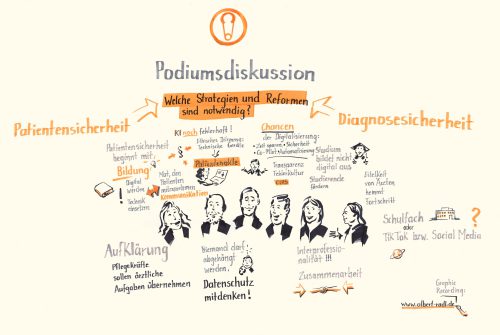 Podiumsdiskussion
Welche Strategien und Reformen
sind notwendig?
Patientensicherheit
Diagnosesicherheit
Patientensicherheit
beginnt mit
Bildung
Digital
werden
Technik
einsetzen
KI noch Fehlerhaft!
Technische Geräte
Patientenakte
Mut, den
Patienten
mitzunehmen
Kommunikation
Chancen
der Digitalisierung:
• Zeit sparen • Sicherheit
• Co-Pilot • Automatisierung
Transparenz
Fehlerkultur
CIRS
Studium
bildet nicht
digital aus
Studierende
fördern
Eitelkeit
von Posten
hemmt
Fortschritt
Schulfach
oder
TikTok bzw. Social Media
?
Aufklärung
Pflegekräfte
sollen ärztliche
Aufgaben übernehmen
Niemand darf
abgehängt
werden.
Datenschutz
mitdenken!
Interprofessio-
nalität !!!
Zusammenarbeit
Graphic
Recording: